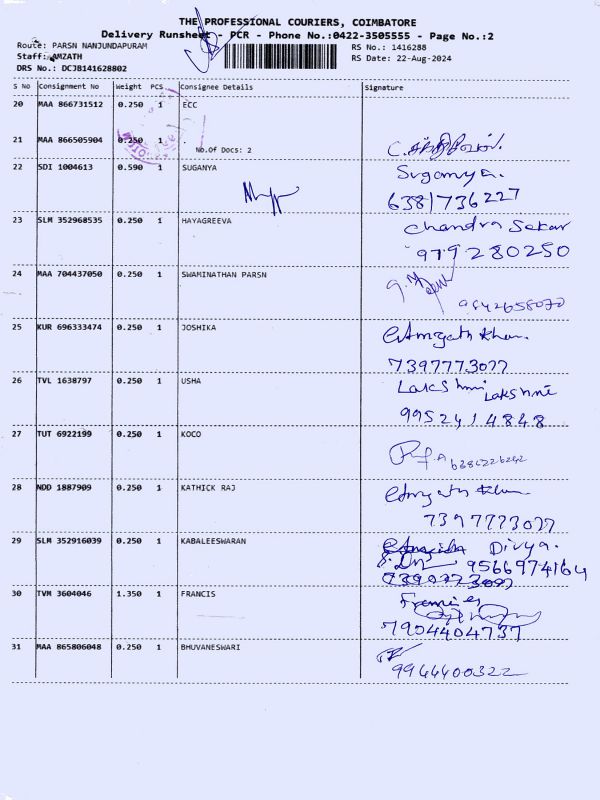 THE PROFESSIONAL COURIERS, COIMBATORE
Delivery Runsheet - PCR - Phone No.:0422-3505555 - Page No.:2
Route: PARSN NANJUNDAPURAM
RS No.: 1416288
Staff: AMZATH
RS Date: 22-Aug-2024
DRS No.: DCJB141628802
S No Consignment No Weight PCS Consignee Details Signature
20 MAA 866731512 0.250 1 ECC
21 MAA 866505904 0.250 1 .
No.Of Docs: 2
22 SDI 1004613 0.590 1 SUGANYA Suganya.
6381736227
23 SLM 352968535 0.250 1 HAYAGREEVA Chandra Sekar
979280250
24 MAA 704437050 0.250 1 SWAMINATHAN PARSN
9842658070
25 KUR 696333474 0.250 1 JOSHIKA
7397773077
26 TVL 1638797 0.250 1 USHA Lakshmi Lakshmi
9952414848
27 TUT 6922199 0.250 1 KOCO
28 NDD 1887909 0.250 1 KATHICK RAJ
7397773077
29 SLM 352916039 0.250 1 KABALEESWARAN Divya.
9566974164
30 TVM 3604046 1.350 1 FRANCIS Francies
7904404737
31 MAA 865806048 0.250 1 BHUVANESWARI
9944400322